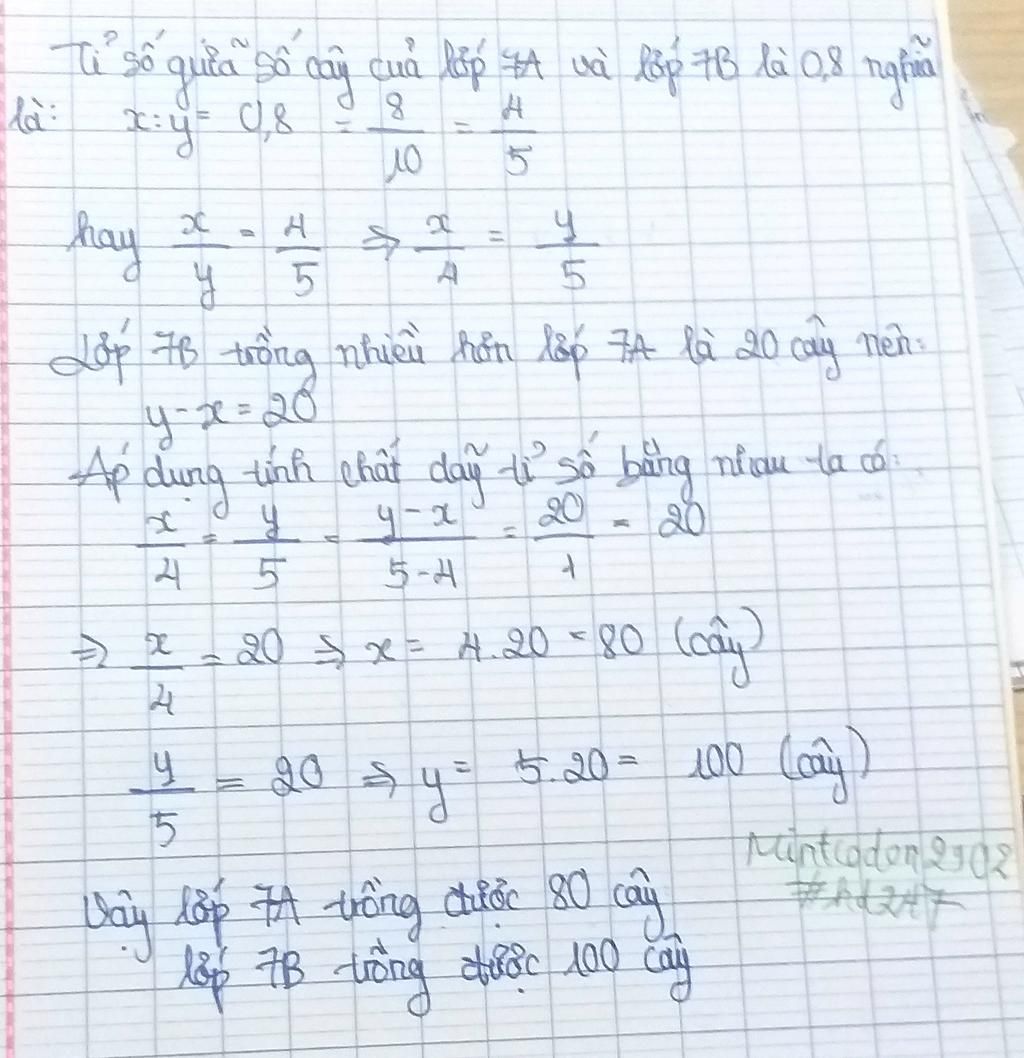 Tỉ số giữa số cây của lớp 7A và lớp 7B là 0,8 nghĩa
là: x:y = 0,8 = 8/10 = 4/5
hay x/y = 4/5 ⇒ x/4 = y/5
Lớp 7B trồng nhiều hơn lớp 7A là 20 cây nên:
y-x = 20
Áp dụng tính chất dãy tỉ số bằng nhau ta có:
x/4 = y/5 = y-x/5-4 = 20/1 = 20
⇒ x/4 = 20 ⇒ x = 4.20 = 80 (cây)
y/5 = 20 ⇒ y = 5.20 = 100 (cây)
Vậy lớp 7A trồng được 80 cây
lớp 7B trồng được 100 cây